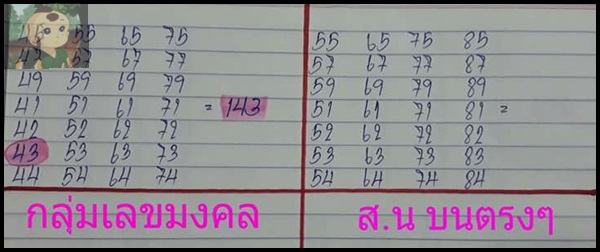 45 55 65 75
47 57 67 77
49 59 69 79
41 51 61 71 = 143
42 52 62 72
43 53 63 73
44 54 64 74
กลุ่มเลขมงคล
55 65 75 85
57 67 77 87
59 69 79 89
51 61 71 81 =
52 62 72 82
53 63 73 83
54 64 74 84
ส.น บนตรงๆ